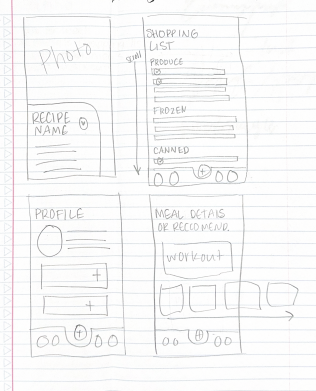 Photo
RECIPE
NAME
SHOPPING
LIST
scroll
PRODUCE
FROZEN
CANNED
+
PROFILE
+
+
+
MEAL DETAILS
OR RECCOMEND.
workout
+